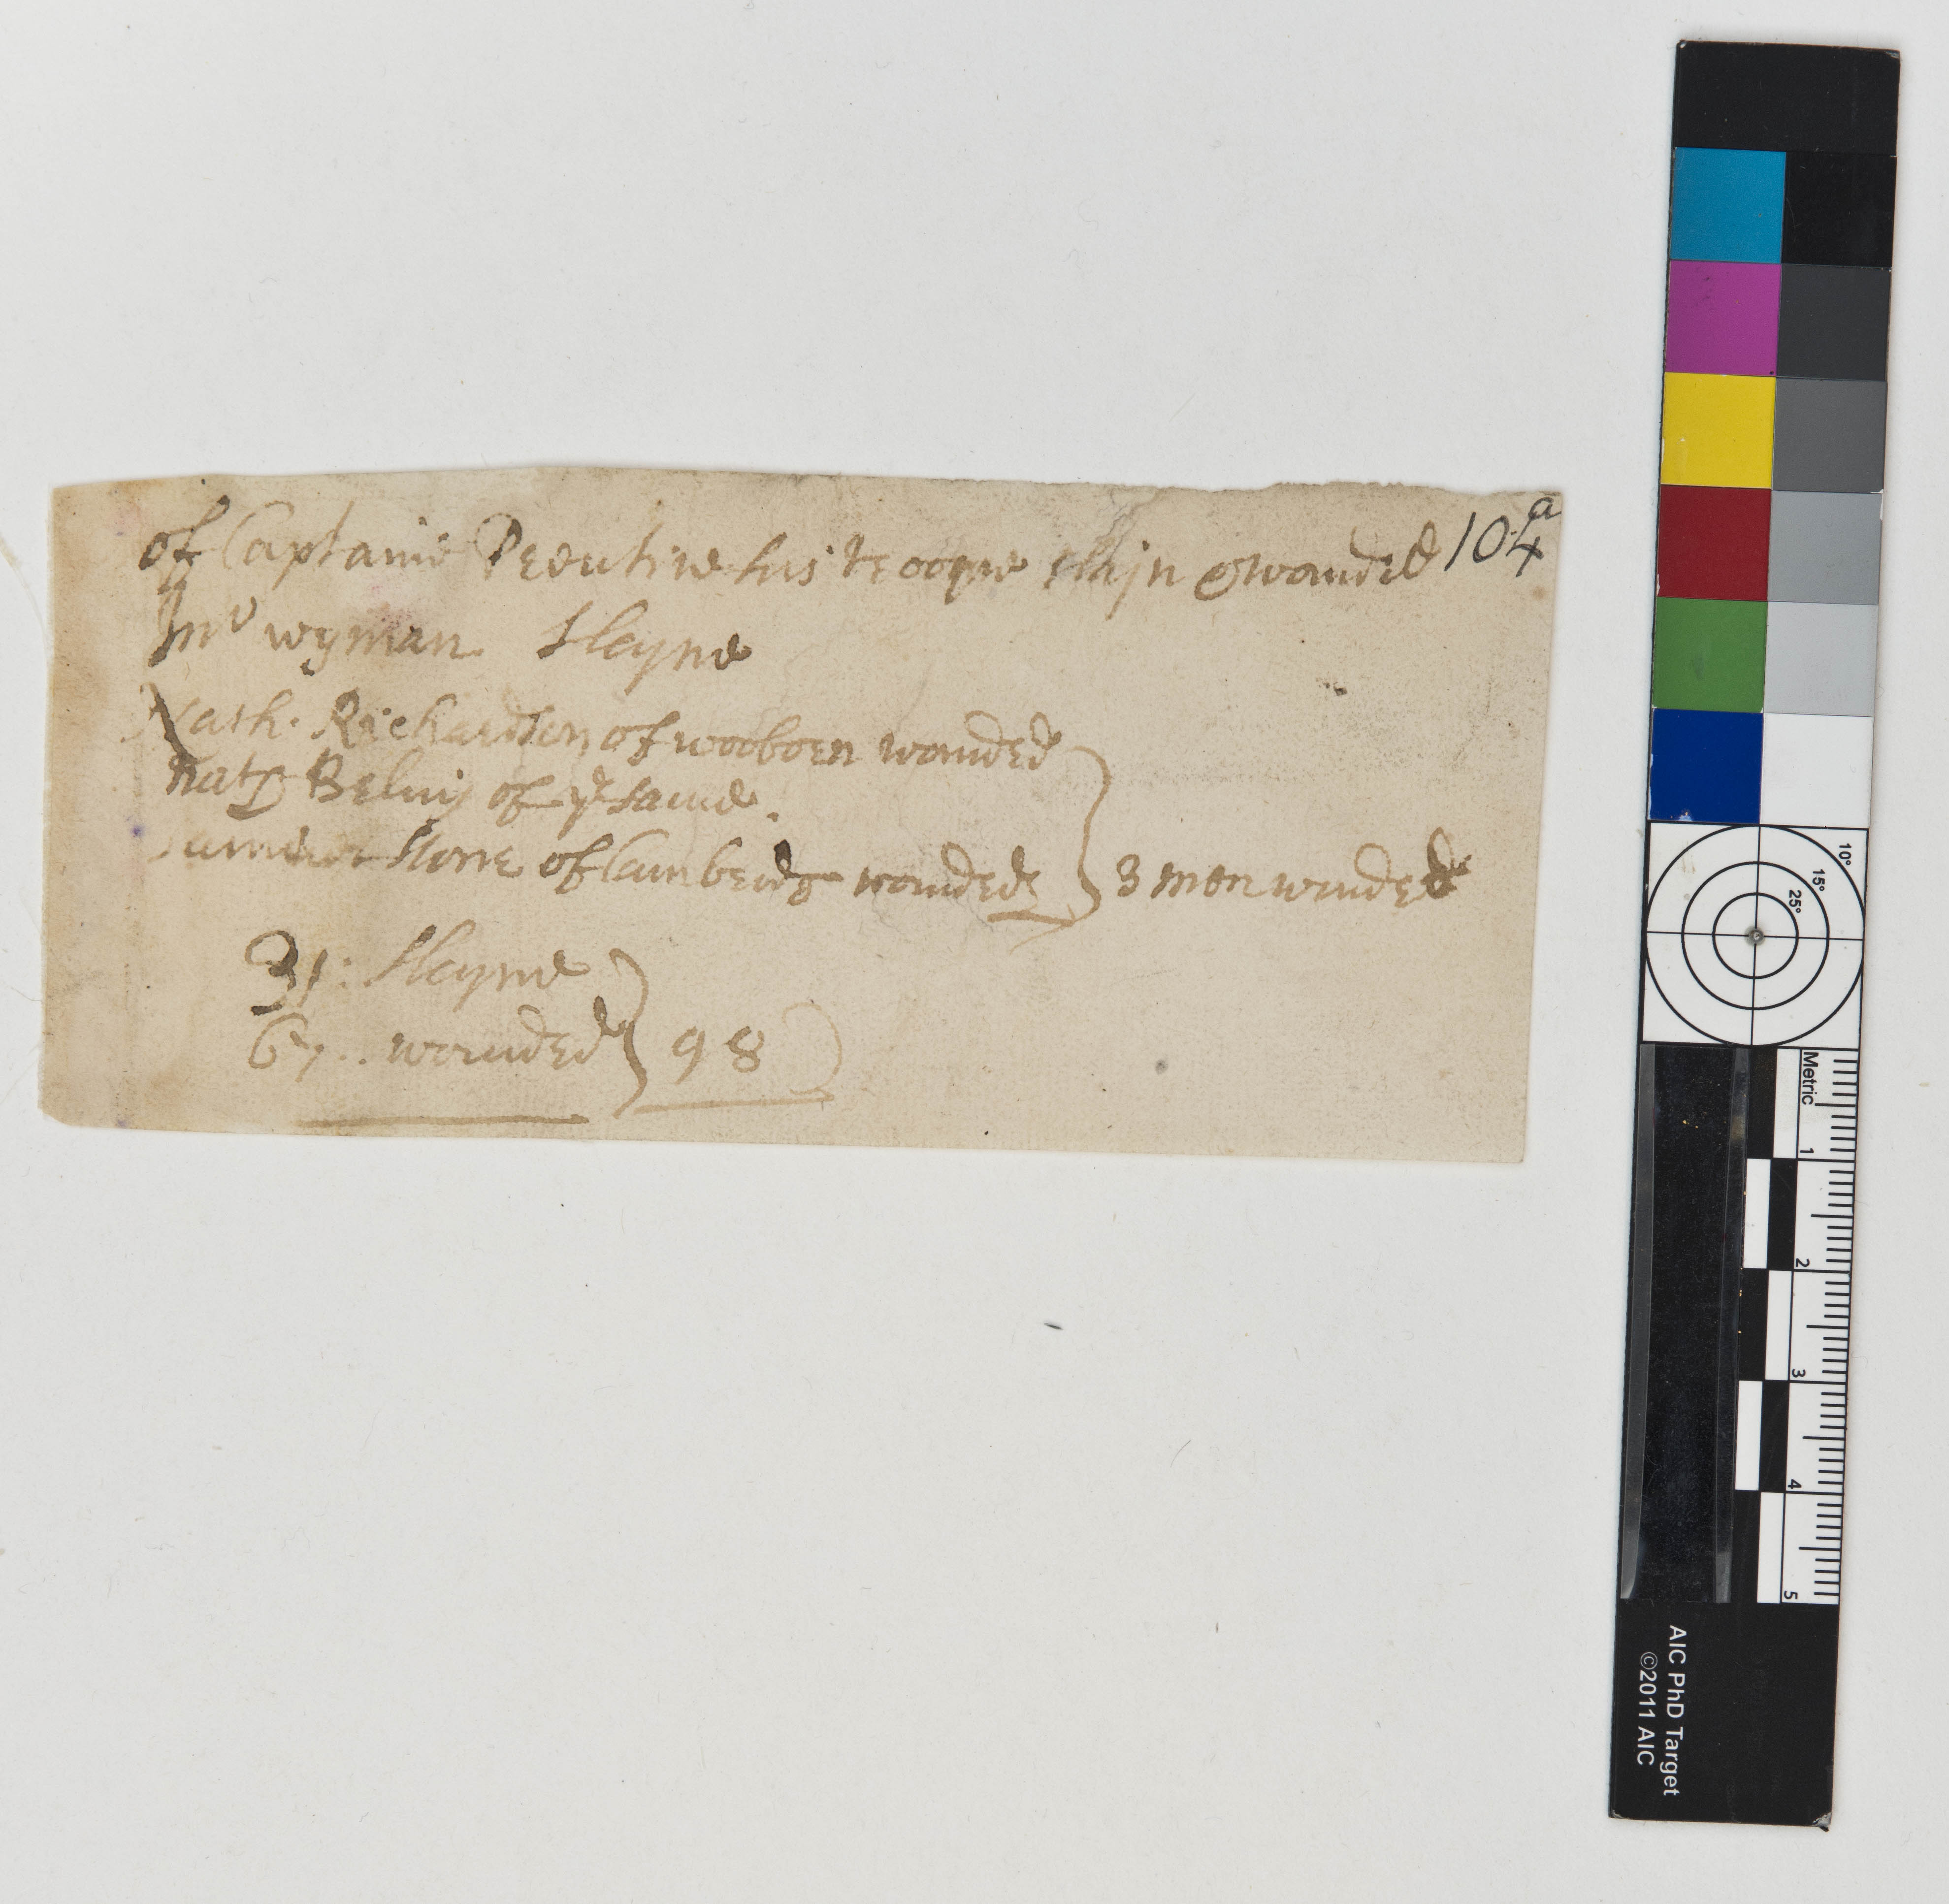 of Captaine Prentice his troope slajn & wounded 104a
Mr wyman Slayne
Nath. Richardson of wooborn wounded
of ye same.
Stone of Cambridg wounded } 3 men wounded
31: Slayne
67.. wounded } 98
10°
15°
25°
Metric
1
2
3
4
5
AIC PhD Target
©2011 AIC